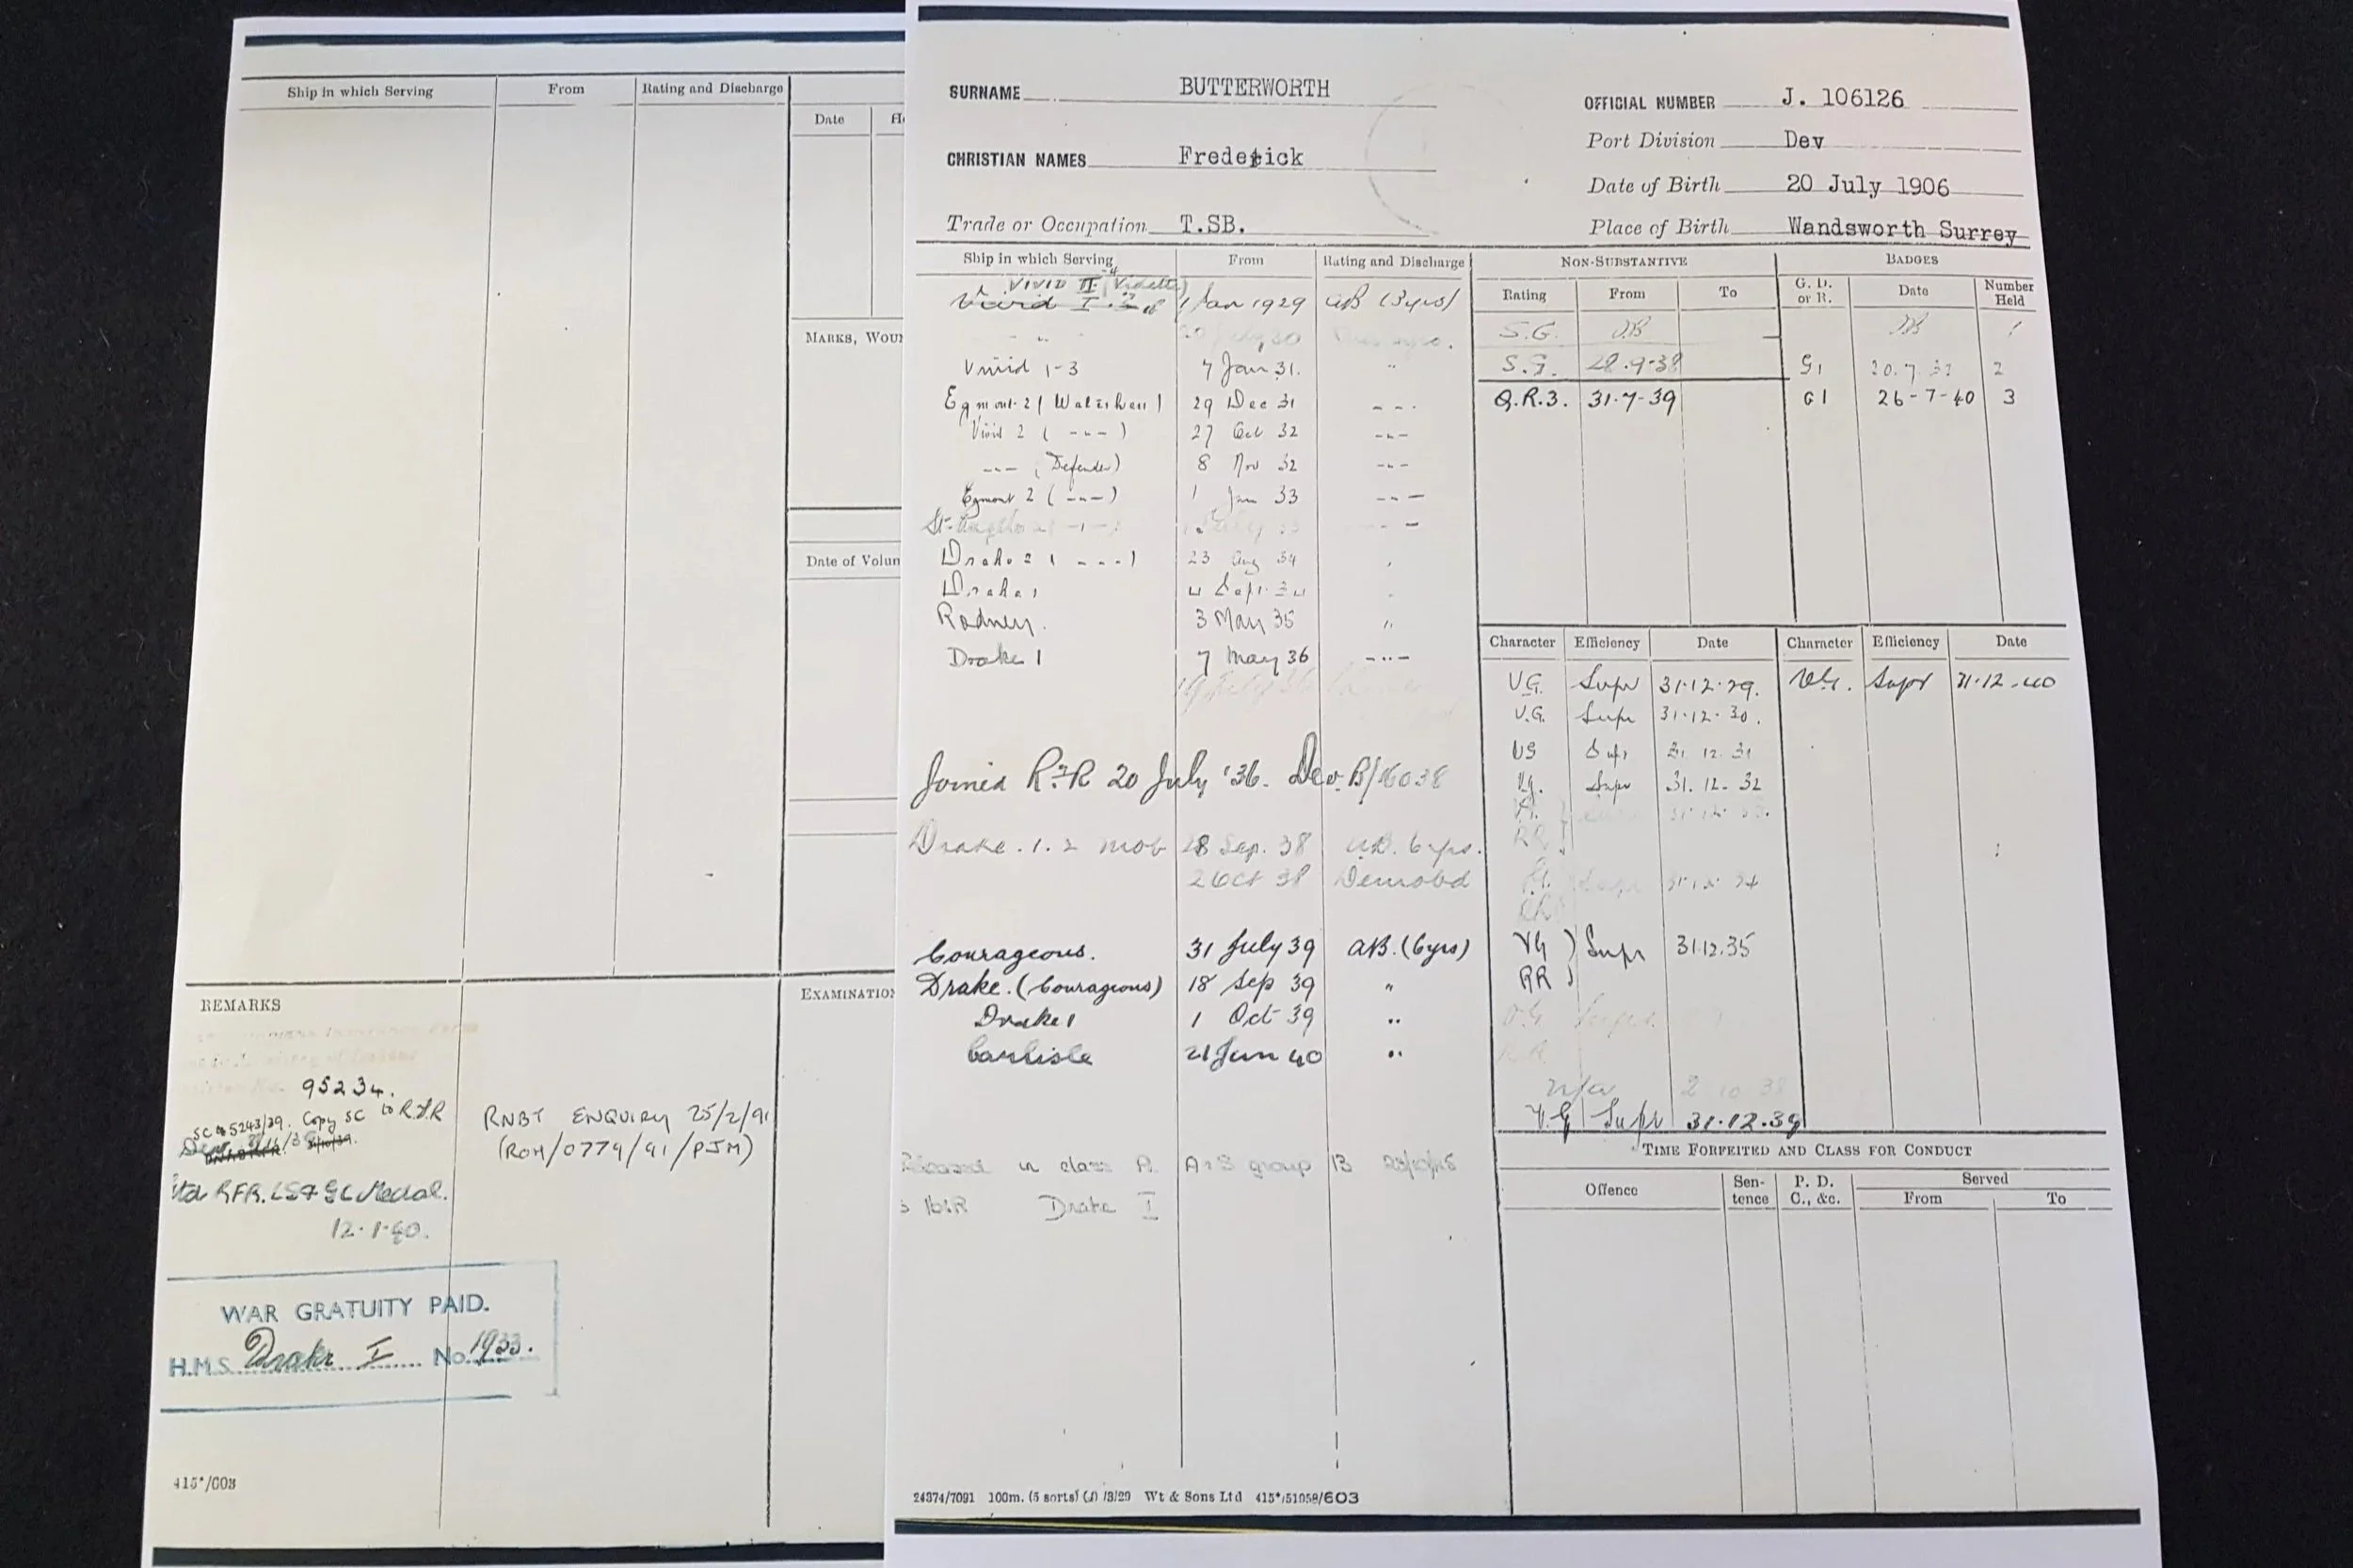 Ship in which Serving From Rating and Discharge
Date
MARKS, WOU
Date of Volun
REMARKS
EXAMINATIO
95234.
SC 45243/39. Copy SC to R.F.R
RNBT ENQUIRY 25/2/91
(ROH/0779/91/PJM)
RFR. LS & GC Medal.
12.1.40.
WAR GRATUITY PAID.
H.M.S. Drake I No. 1933.
415*/603
SURNAME BUTTERWORTH
OFFICIAL NUMBER J. 106126
Port Division Dev
CHRISTIAN NAMES Frederick
Date of Birth 20 July 1906
Trade or Occupation T.SB.
Place of Birth Wandsworth Surrey
Ship in which Serving From Rating and Discharge
VIVID II (Vidette)
Vivid I 1 Jan 1929 AB (3yrs)
Vivid 1-3 7 Jan 31. "
Egmont 2 (Watchen) 29 Dec 31 - " -
Vivid 2 ( - " - ) 27 Oct 32 - " -
- " - (Defender) 8 Nov 32 - " -
Egmont 2 ( - " - ) 1 Jan 33 - " -
Drake 2 ( - " - ) 23 Aug 34
Drake 1 4 Sept. 34
Rodney. 3 May 35 "
Drake 1 7 May 36 - " -
Joined RFR 20 July '36. Dev. B/16038
Drake. 1. 2 mob 28 Sep. 38 AB. 6yrs.
2 Oct 38 Demobd
Courageous. 31 July 39 AB. (6yrs)
Drake. (Courageous) 18 Sep 39 "
Drake 1 1 Oct 39 "
Carlisle 21 Jun 40 "
Released in class A. A+S group 13
Drake I
24374/7091 100m. (5 sorts) (J) /3/29 Wt & Sons Ltd 415*/51058/603
NON-SUBSTANTIVE BADGES
Rating From To G. D. or R. Date Number Held
S.G.
S.G. 28.9.38 G1 20.7.32 2
Q.R.3. 31-7-39 G1 26-7-40 3
Character Efficiency Date Character Efficiency Date
V.G. Supr 31.12.29. VG. Supr 31.12.40
V.G. Supr 31.12.30.
VG Supr 31.12.31
VG. Supr 31.12.32
RR
VG Supr 31.12.35
RR
n/a 2 10 38
V.G Supr 31.12.39
TIME FORFEITED AND CLASS FOR CONDUCT
Offence Sentence P. D. C., &c. Served
From To